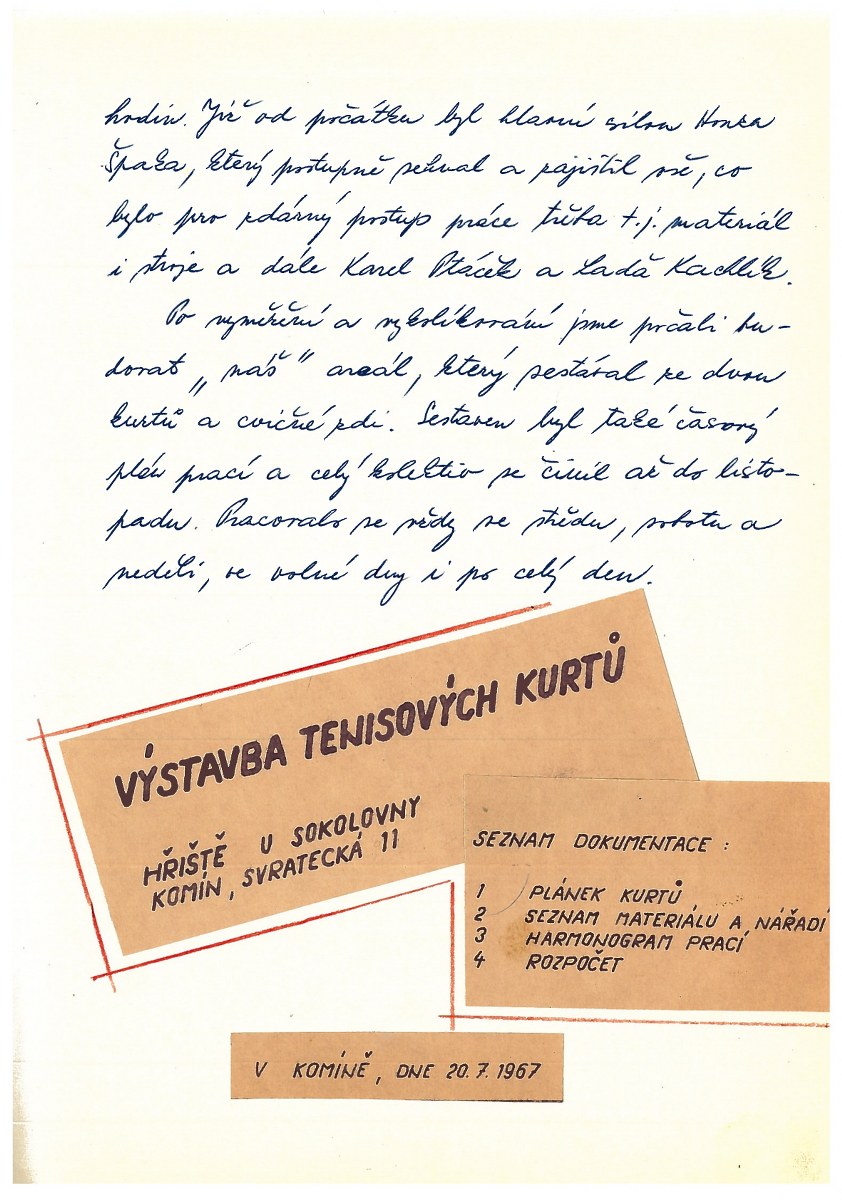 hodin. Již od počátku byl hlavní silou Honza
Špaka, který postupně sehnal a zajistil vše, co
bylo pro zdárný postup práce třeba t.j. materiál
i stroje a dále Karel Ptáček a Laďa Kachlík.
Po vyměření a vykolíkování jsme počali bu-
dovat „náš" areál, který sestával ze dvou
kurtů a cvičné zdi. Sestaven byl také časový
plán prací a celý kolektiv se činil až do listo-
padu. Pracovalo se vždy ve středu, sobotu a
neděli, ve volné dny i po celý den.
VÝSTAVBA TENISOVÝCH KURTŮ
HŘIŠTĚ U SOKOLOVNY
KOMÍN, SVRATECKÁ 11
SEZNAM DOKUMENTACE :
1 PLÁNEK KURTŮ
2 SEZNAM MATERIÁLU A NÁŘADÍ
3 HARMONOGRAM PRACÍ
4 ROZPOČET
V KOMÍNĚ, DNE 20.7.1967